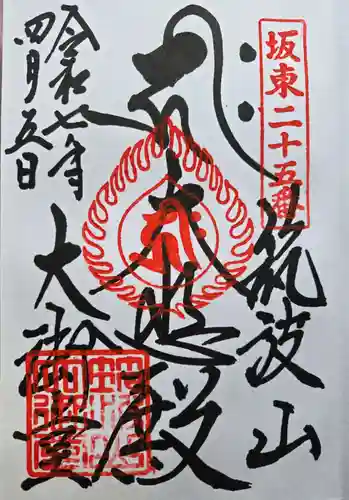 坂東二十五番
筑波山
大悲殿
令和七年
四月五日
大御堂